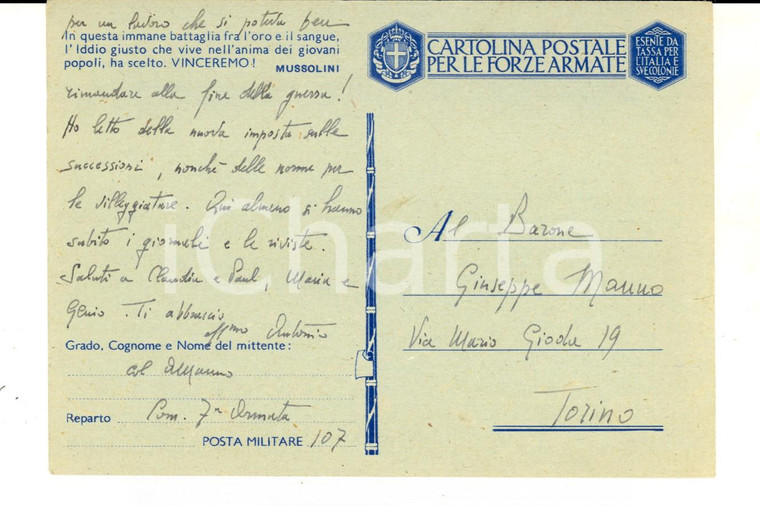 per un lavoro che si poteva ben
In questa immane battaglia fra l'oro e il sangue,
l'Iddio giusto che vive nell'anima dei giovani
popoli, ha scelto. VINCEREMO!
MUSSOLINI
rimandare alla fine della guerra!
Ho letto della nuova imposta sulle
successioni, nonché delle norme per
le villeggiature. Qui almeno si hanno
subito i giornali e le riviste.
Saluti a Claudia e Paul, Maria e
Genio. Ti abbraccio
aff.mo Antonio
Grado, Cognome e Nome del mittente:
col Manno
Reparto Com. 7a Armata
POSTA MILITARE 107
CARTOLINA POSTALE
PER LE FORZE ARMATE
ESENTE DA
TASSA PER
L'ITALIA E
SVE COLONIE
Al Barone
Giuseppe Manno
Via Mario Gioda 19
Torino
iCharta